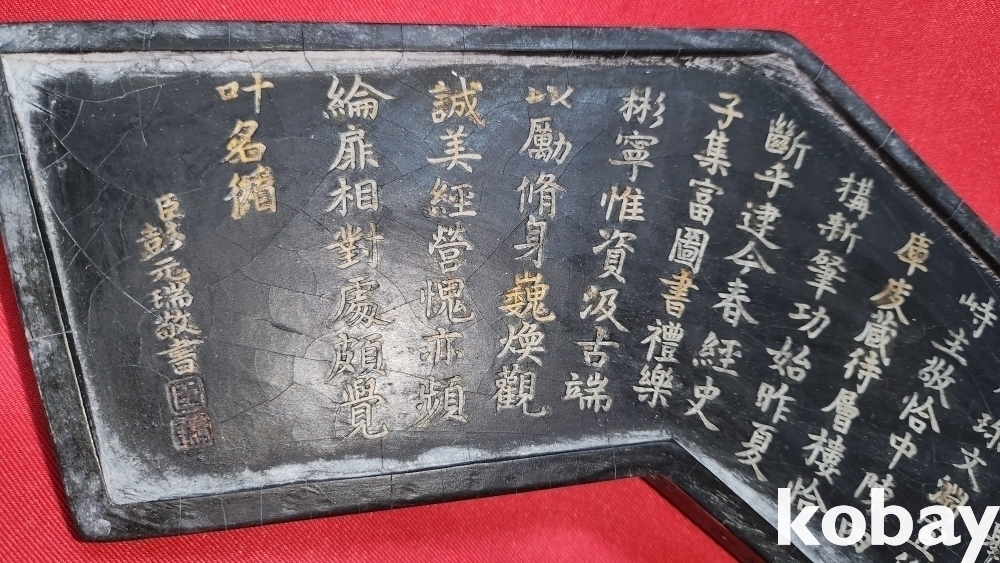 珍文淵
峙主敬恰中陳
庫庋藏待層樓恰
構新肇功始昨夏
斷手逮今春經史
子集富圖書禮樂
彬寧惟資汲古端
以勵脩身巍煥觀
誠美經營愧亦頻
綸扉相對處頗覺
叶名循
臣彭元瑞敬書
kobay